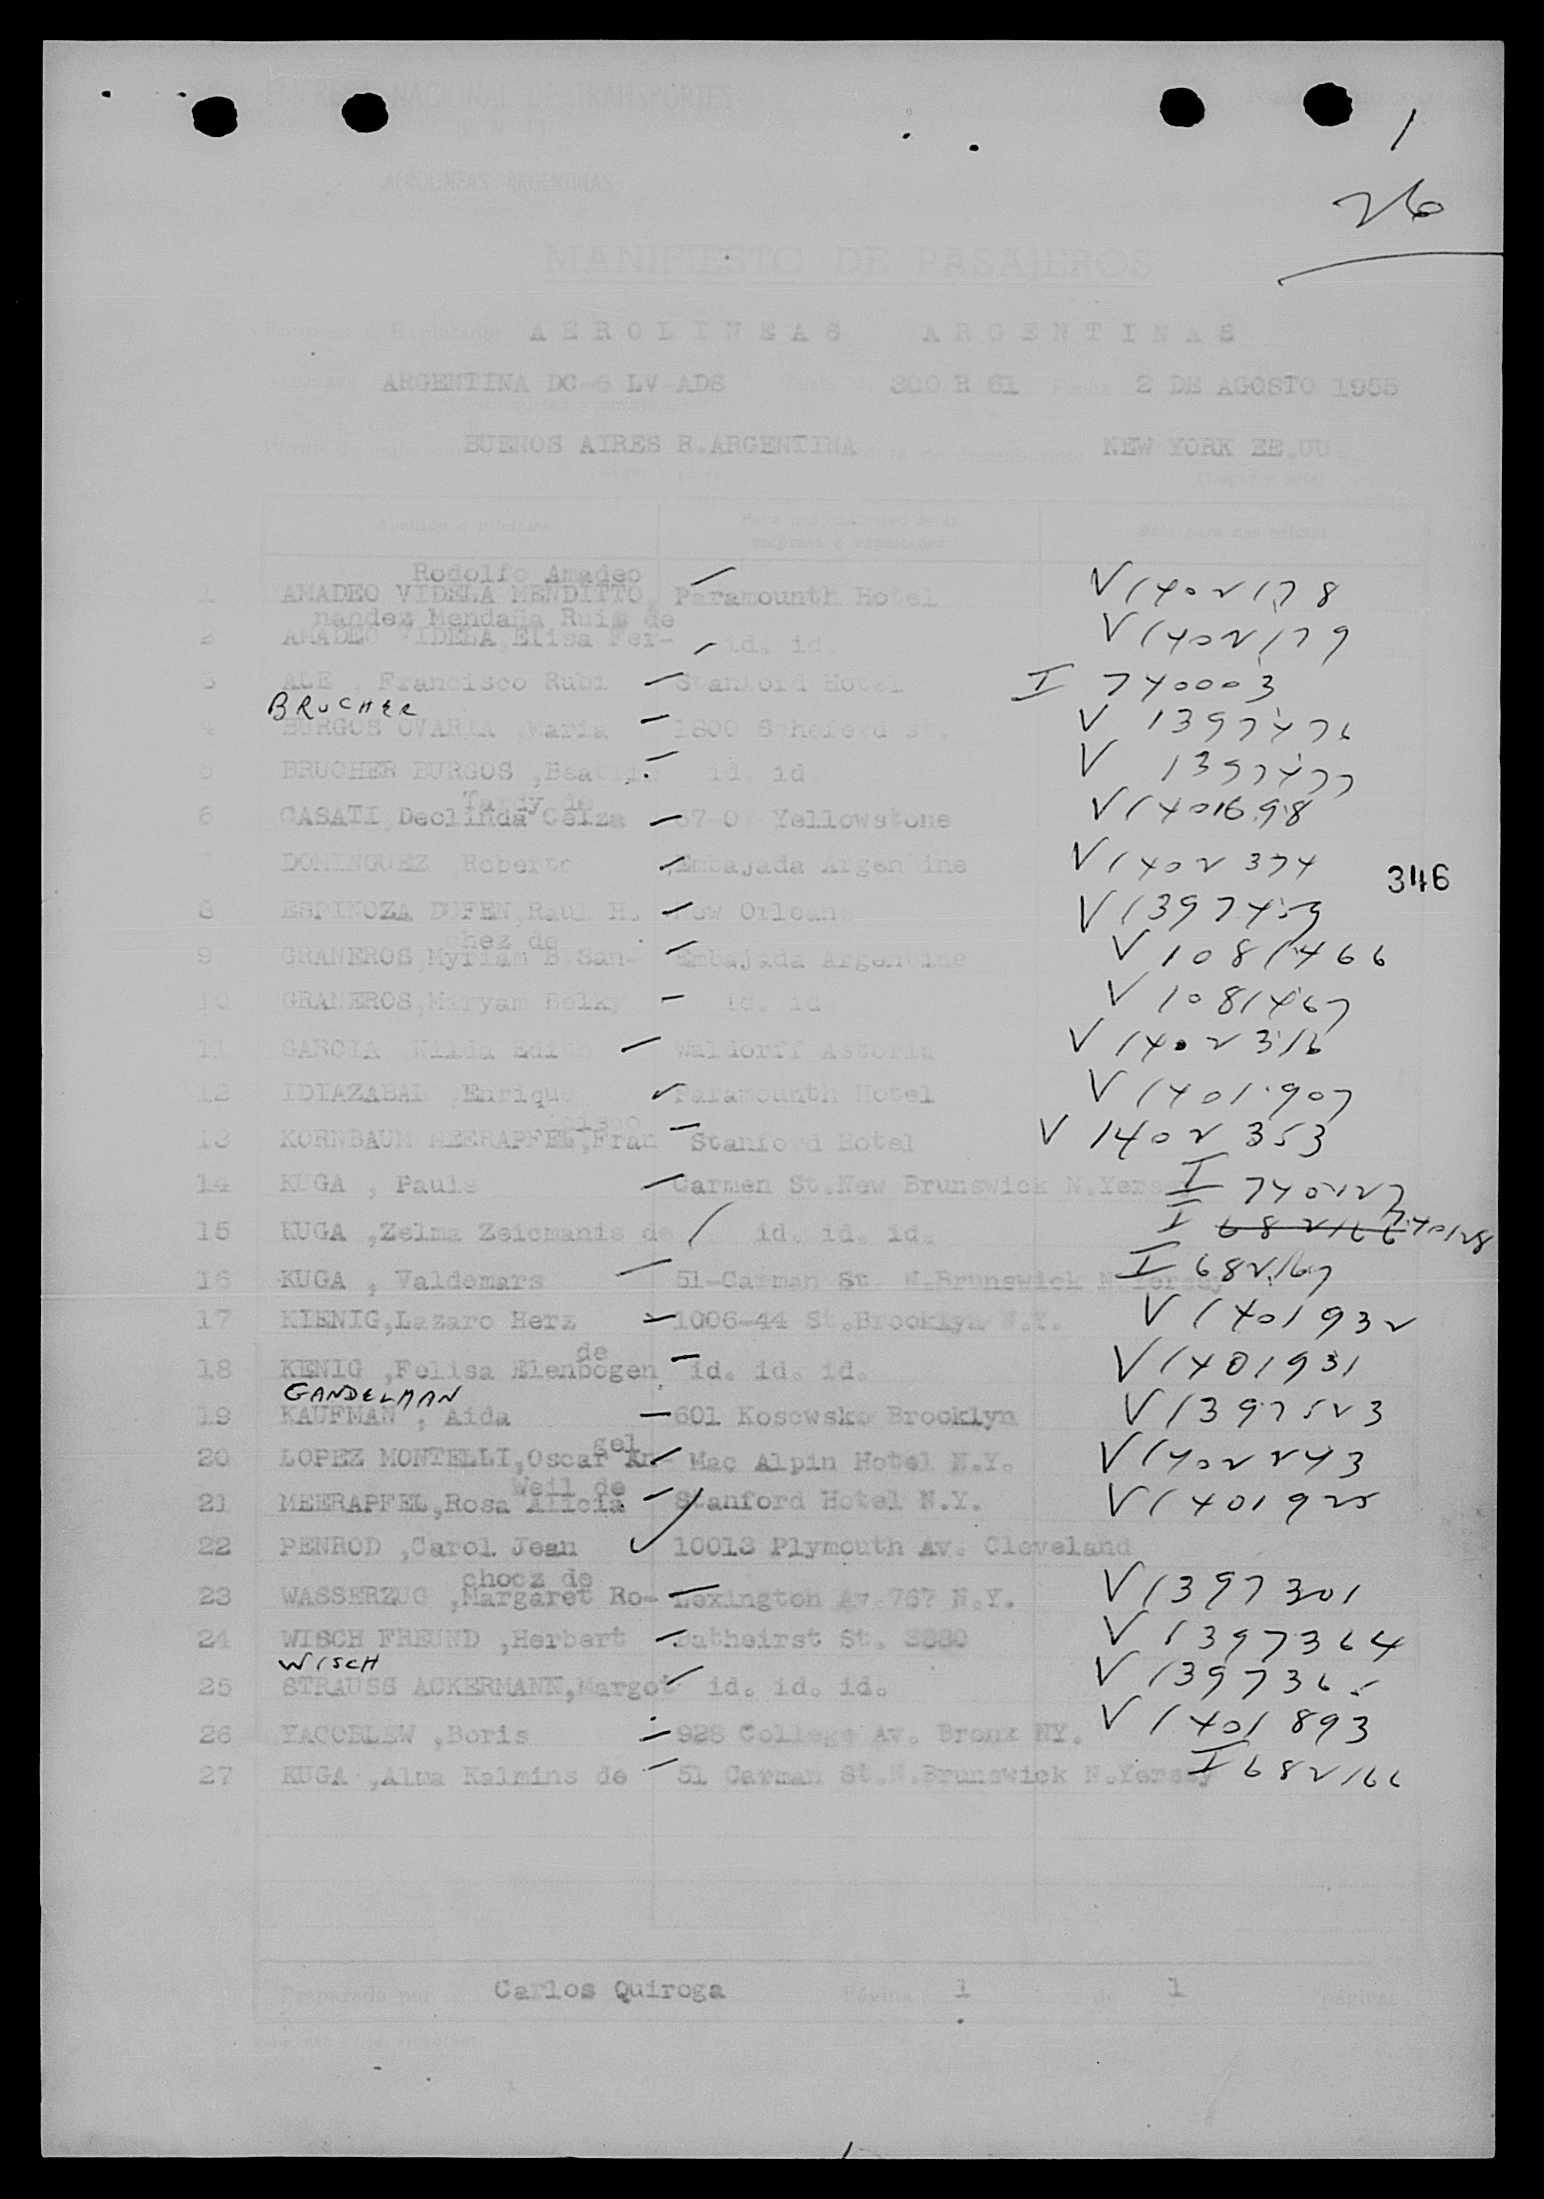 1
26
EMPRESA NACIONAL DE TRANSPORTES
AEROLINEAS ARGENTINAS
MANIFIESTO DE PASAJEROS
AEROLINEAS ARGENTINAS
ARGENTINA DC-6 LV-ADS 300 R 61 Fecha 2 DE AGOSTO 1955
BUENOS AIRES R.ARGENTINA NEW YORK EE.UU.
Rodolfo Amadeo
1 AMADEO VIDELA MENDITTO, Paramounth Hotel V 1402178
nandez Mendaña Ruiz de
2 AMADEO VIDELA, Elisa Fer- id. id. V 1402179
3 ALE , Francisco Rubi Stanford Hotel I 740003
BRUCHER
4 BURGOS OVARIA ,Maria 1800 V 1397476
5 BRUCHER BURGOS ,Beatriz id. id. V 1397477
Tardy de
6 CASATI, Deolinda Celza 67-0 Yellowstone V 1401698
DOMINGUEZ Roberto Embajada Argentine V 1402374
346
8 ESPINOZA DUFEN, Raul H. New Orleans V 1397453
chez de
9 GRANEROS, Myriam B.San- Embajada Argentine V 1081466
10 GRANEROS, Miryam Belky id. id. V 1081467
11 GARCIA ,Nilda Edith Waldorff Astoria V 1402316
12 IDIAZABAL ,Enrique Paramounth Hotel V 1401907
cisco
13 KORNBAUM MEERAPFEL, Fran Stanford Hotel V 1402353
14 KUGA , Pauls Carmen St.New Brunswick N.Yersey I 740127
15 KUGA ,Zelma Zeicmanis de id. id. id. I 682166 740128
16 KUGA , Valdemars 51-Carman St. N.Brunswick N.Yersey I 682167
17 KIENIG, Lazaro Herz 1006-44 St.Brooklyn N.Y. V 1401932
de
18 KENIG ,Felisa Elenbogen id. id. id. V 1401931
GANDELMAN
19 KAUFMAN , Aida 601 Kosowsko Brooklyn V 1397523
gel
20 LOPEZ MONTELLI, Oscar An Mac Alpin Hotel N.Y. V 1402243
Weil de
21 MEERAPFEL, Rosa Alicia Stanford Hotel N.Y. V 1401925
22 PENROD ,Carol Jean 10013 Plymouth Av. Cleveland
chocz de
23 WASSERZUG ,Margaret Ro- Lexington Av.767 N.Y. V 1397301
24 WISCH FREUND ,Herbert Batheirst St. 3880 V 1397364
WISCH
25 STRAUSS ACKERMANN, Margot id. id. id. V 1397365
26 YACOBLEW ,Boris 928 College Av. Bronx NY. V 1401893
27 KUGA ,Alma Kalmins de 51 Carman St.N.Brunswick N.Yersey I 682166
Preparado por Carlos Quiroga Página 1 de 1 páginas